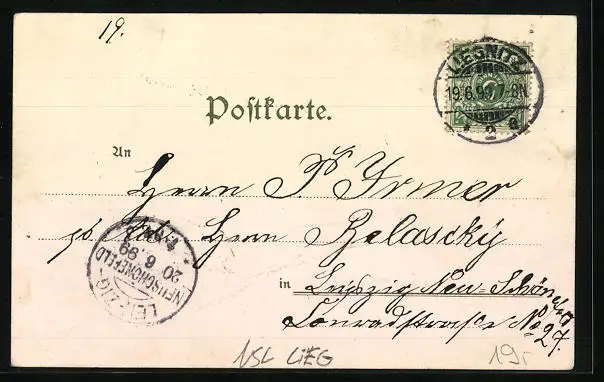 19.
LIEGNITZ
19.6.99.7-8N
2 a
Postkarte.
An
Herrn P. Irmer
Herrn Belascky
LEIPZIG-NEUSCHÖNEFELD
20.6.99
in Leipzig Neu-Schönefeld
Conradstrasse No 27.
NSL LiEG
19r